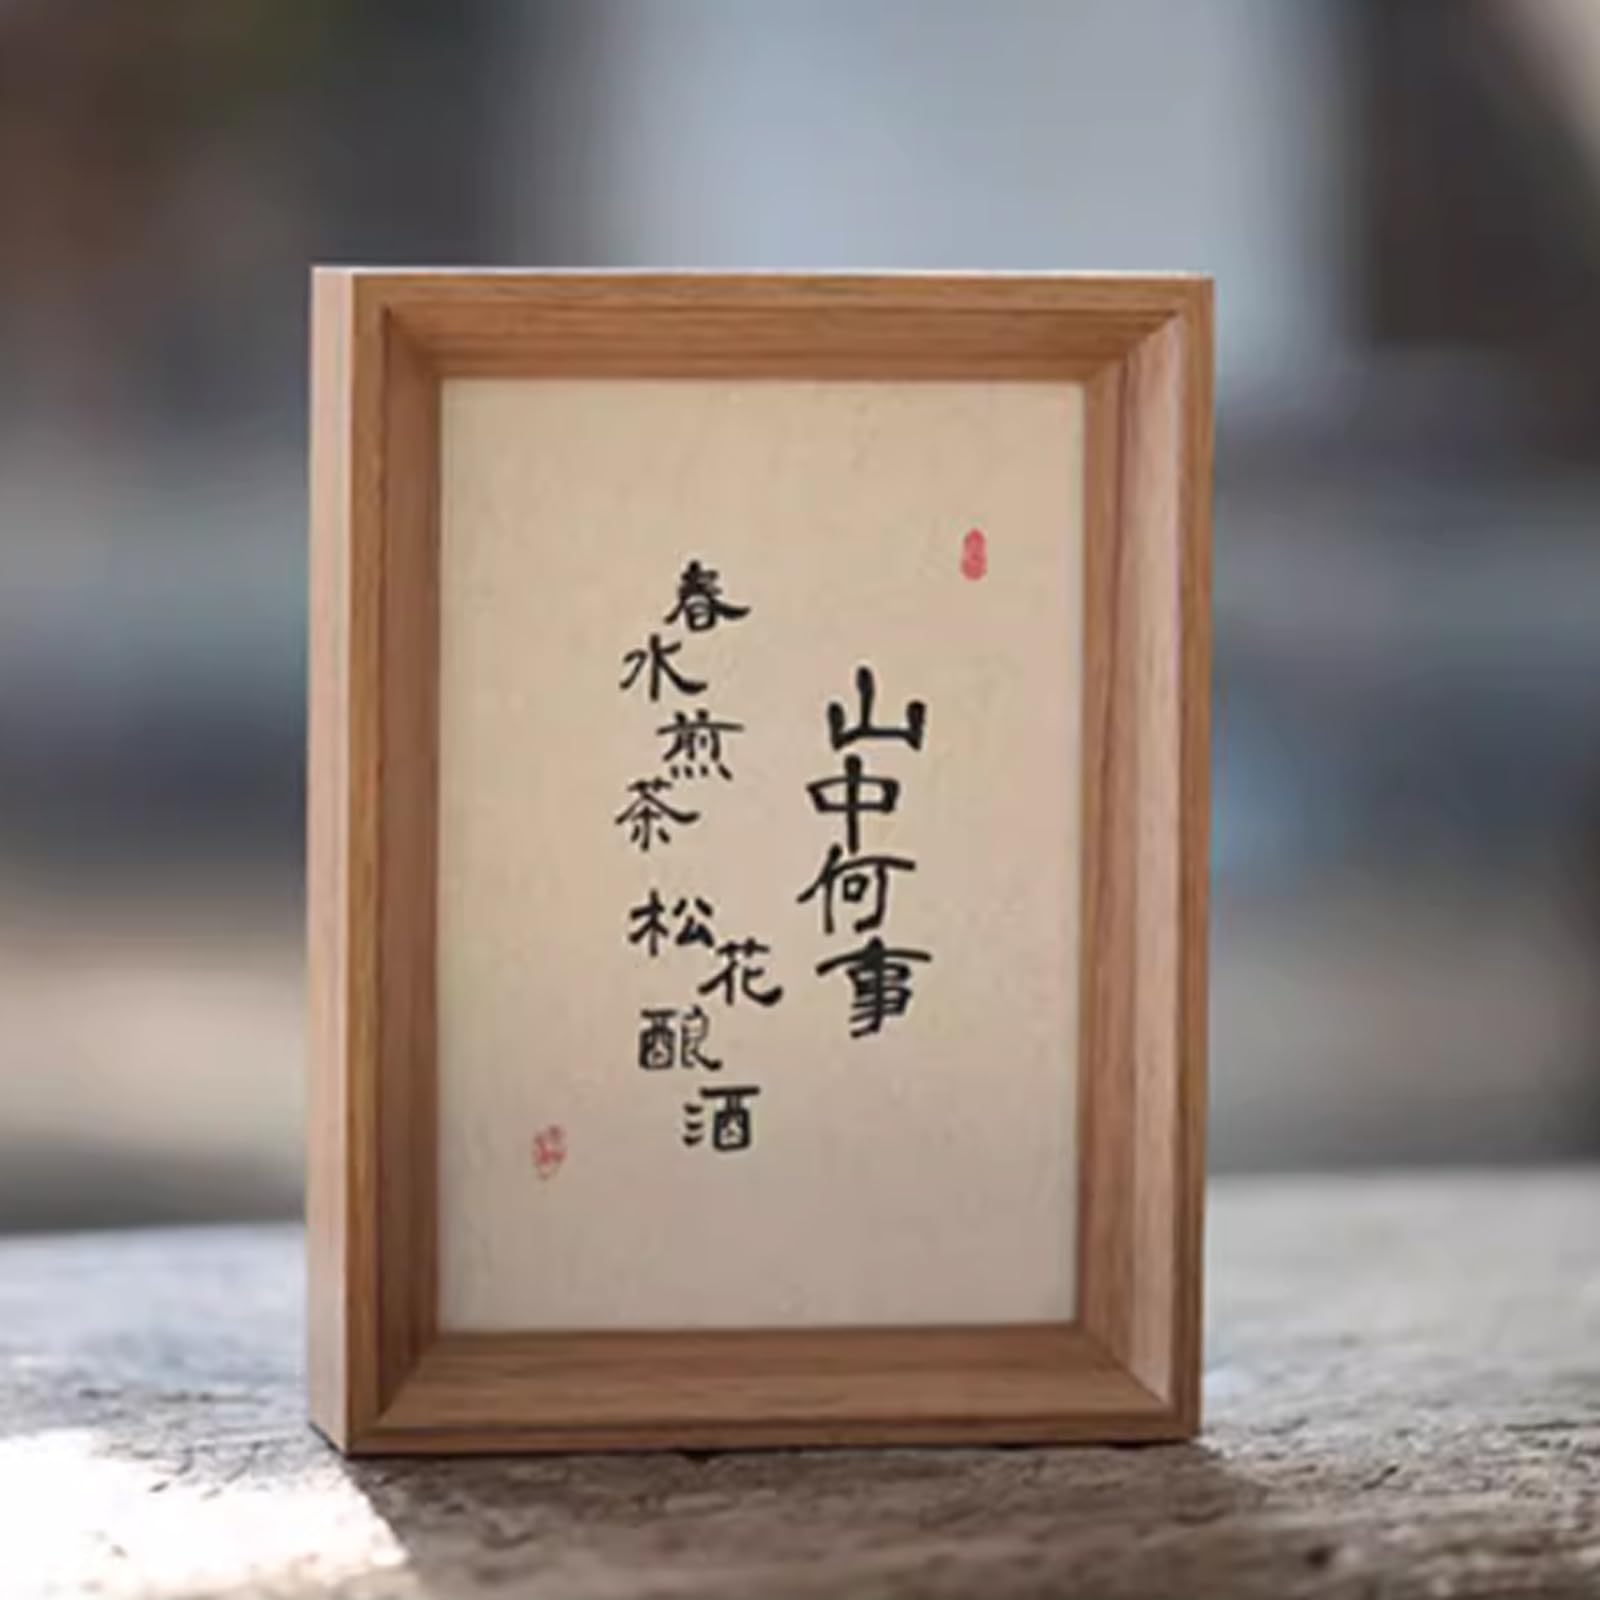 山中何事
春水煎茶
松花酿酒